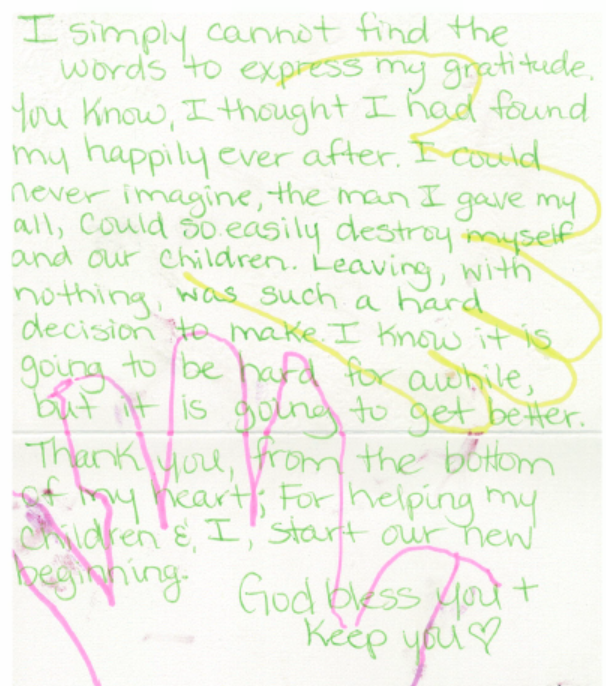 I simply cannot find the
words to express my gratitude.
You know, I thought I had found
my happily ever after. I could
never imagine, the man I gave my
all, could so easily destroy myself
and our children. Leaving, with
nothing, was such a hard
decision to make. I know it is
going to be hard for awhile,
but it is going to get better.
Thank you, from the bottom
of my heart; For helping my
children & I, start our new
beginning.
God bless you +
Keep you ♡